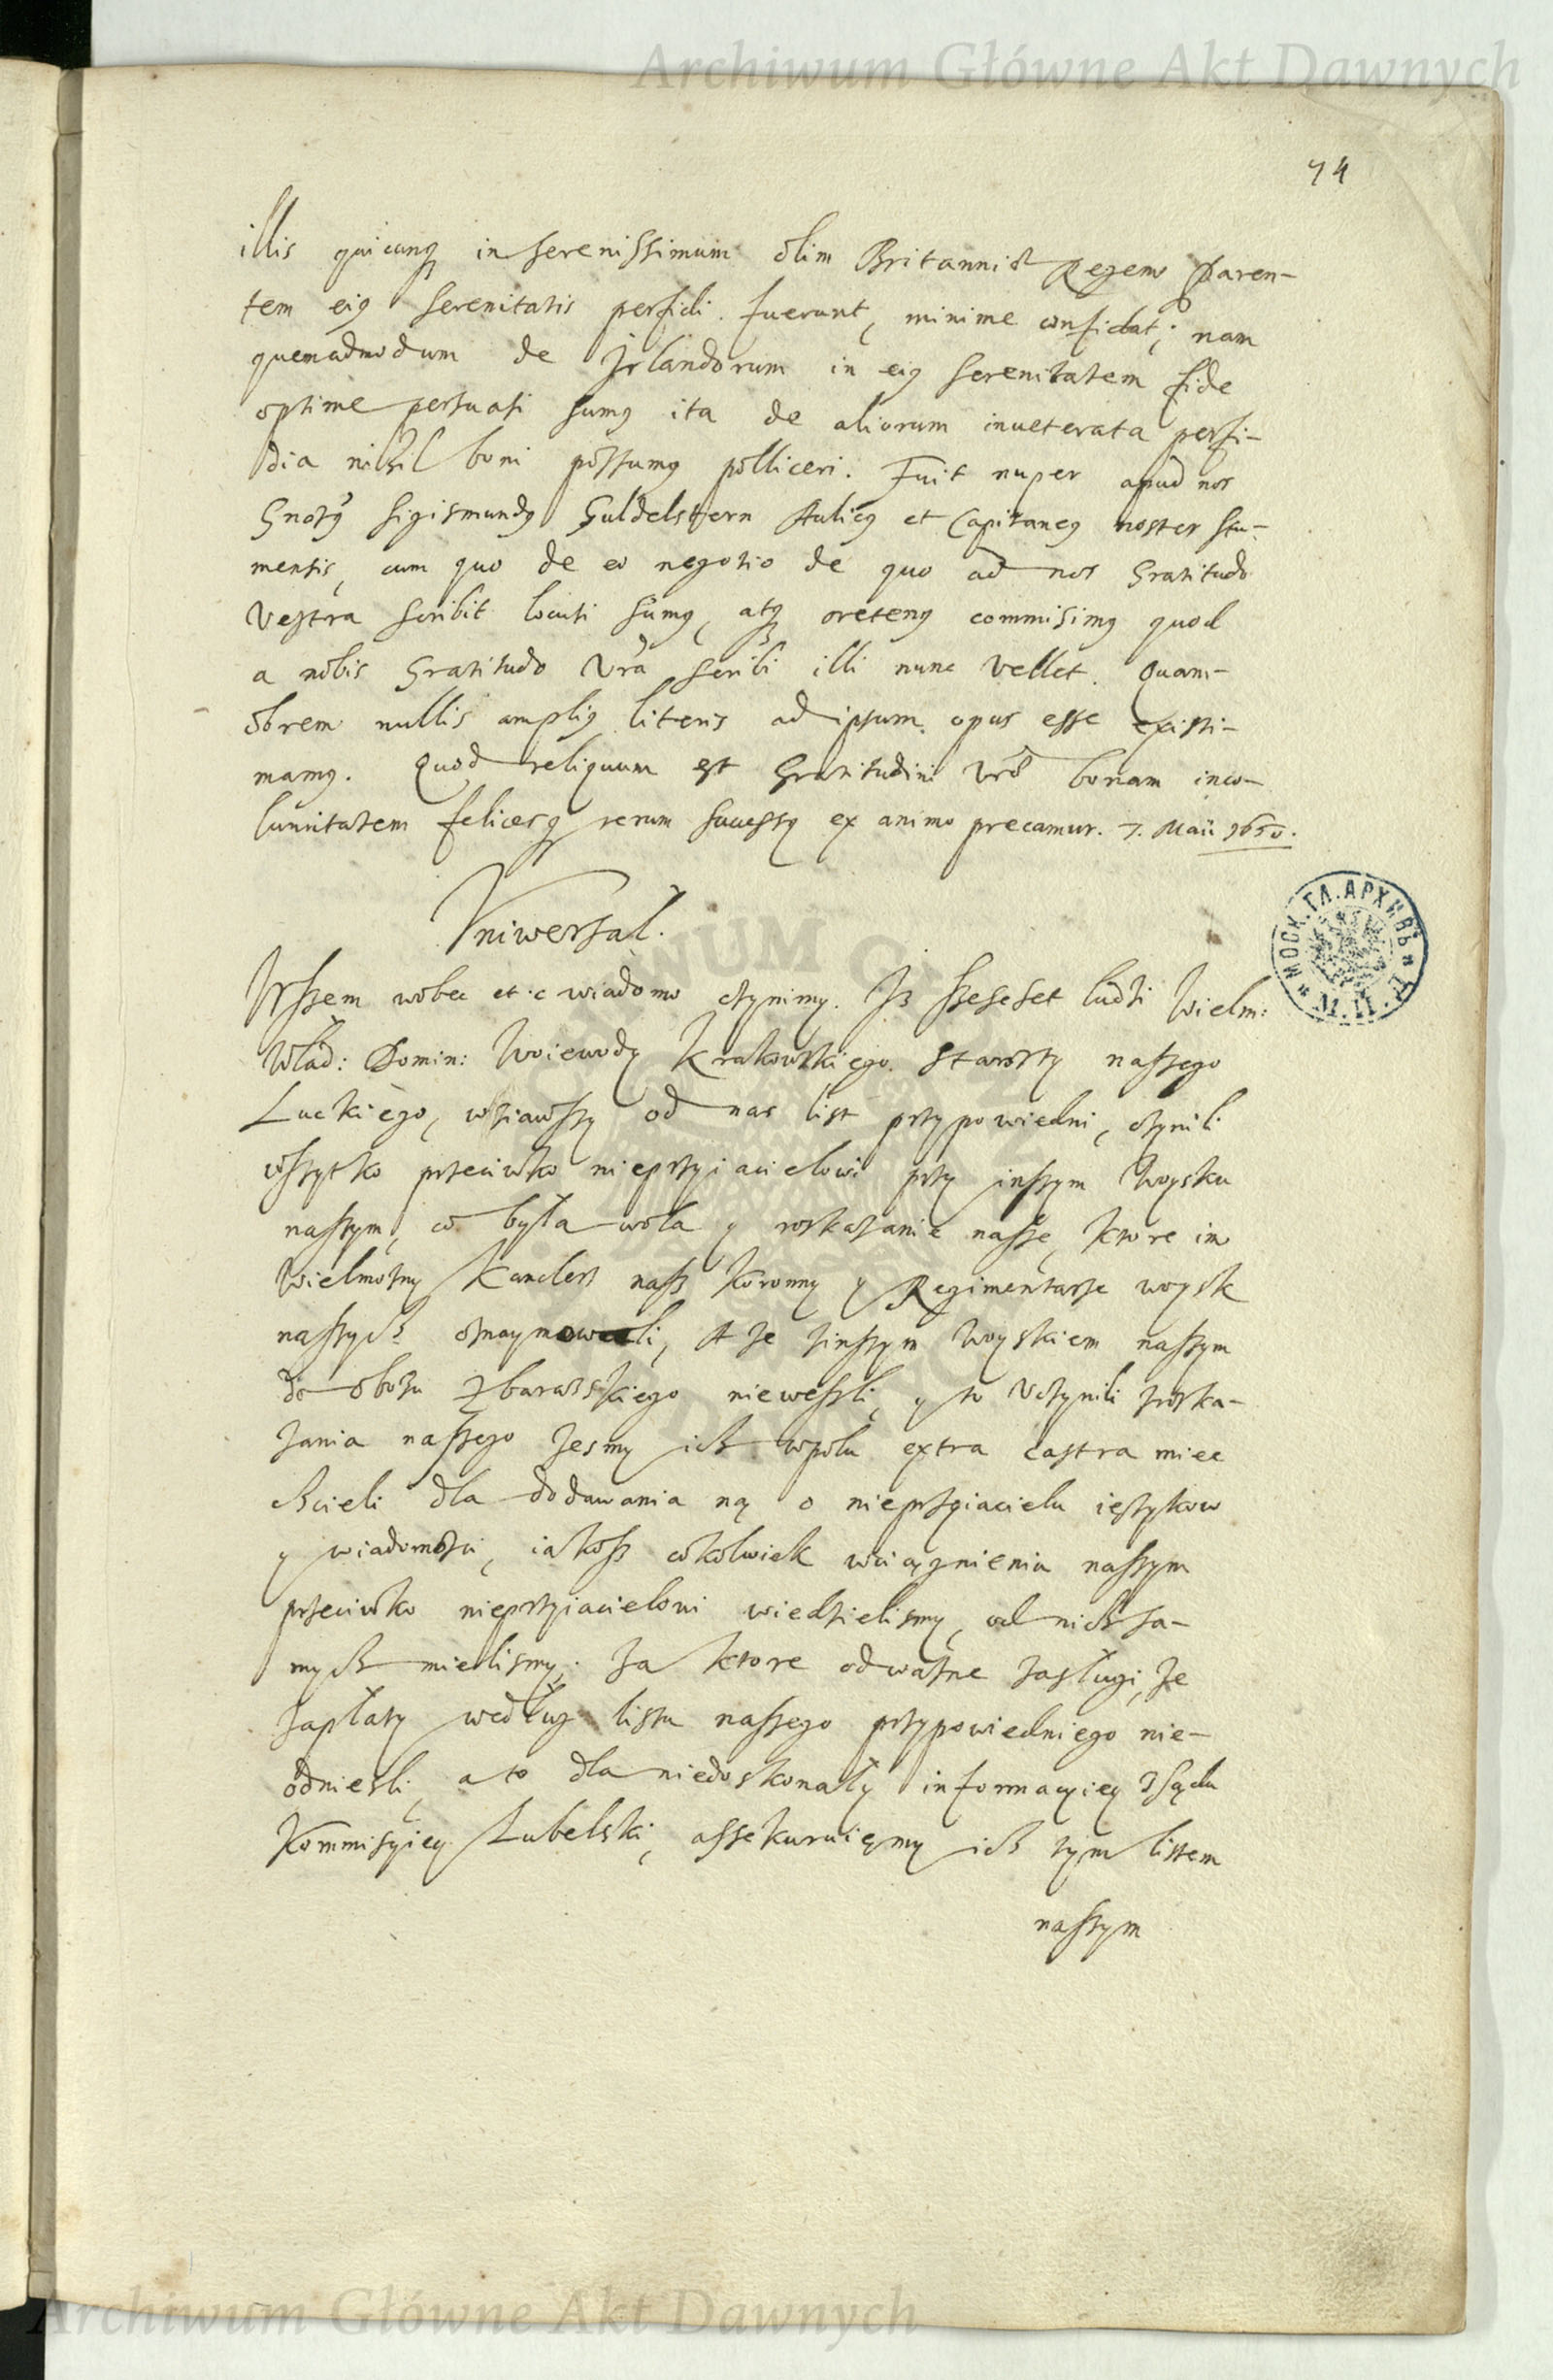 Archiwum Główne Akt Dawnych
74
illis quicunq in Serenissimum olim Britanniæ Regem Paren-
tem eiq Serenitatis perfidi fuerunt, minime confidat; nam
quemadmodum de Irlandorum in eiq Serenitatem fide
optime persuasi sumq ita de aliorum inueterata perfi-
dia nihil boni possumq polliceri. Fuit nuper apud nos
Gnosq Sigismundq Guldelstern Aulicq et Capitaneq noster Stu-
mensis, cum quo de eo negotio de quo ad nos Gratitudo
Vestra scribit locuti sumq, atq oretenq commisimq quod
a nobis Gratitudo Vra scribi illi nunc vellet. Quam-
obrem nullis ampliq literis ad ipsum opus esse existi-
mamq. Quod reliquum est Gratitudini Vræ bonam inco-
lumitatem felicesq rerum successq ex animo precamur. 7. Maii 1650.
Vniwersał.
Wszem wobec et c wiadomo czynimy. Iz szescset ludzi Wielm:
Wład: Domin: Woiewody Krakowskiego Starosty naszego
Luckiego, wziawszy od nas list przypowiedni, czynili
wszytko przeciwko nieprzyiacielowi przy inszym woysku
naszym, co była wola y roskazanie nasze, ktore im
Wielmozny Kanclerz nasz koronny y Regimentarze woysk
naszych oznaymowali, A ze zinszym woyskiem naszym
do obozu Zbarazskiego nieweszli, y to Vczynili zroska-
zania naszego zesmy ich wpolu extra castra miec
chcieli dla dodawania ną o nieprzyiacielu ięzykow
y wiadomosci, iakosz cokolwiek wciągnieniu naszym
przeciwko nieprzyiacielowi wiedzielismy, od nich sa-
mych mielismy; Za ktore odwazne zasługi, ze
zapłaty według listu naszego przypowiedniego nie-
odniesli, a to dla niedoskonały informacyiey zsądu
Kommisyiey Lubelski, assekuruięmy ich tym listem
naszym
МОСК. ГЛ. АРХИВЪ
М. И. Д.
Archiwum Główne Akt Dawnych